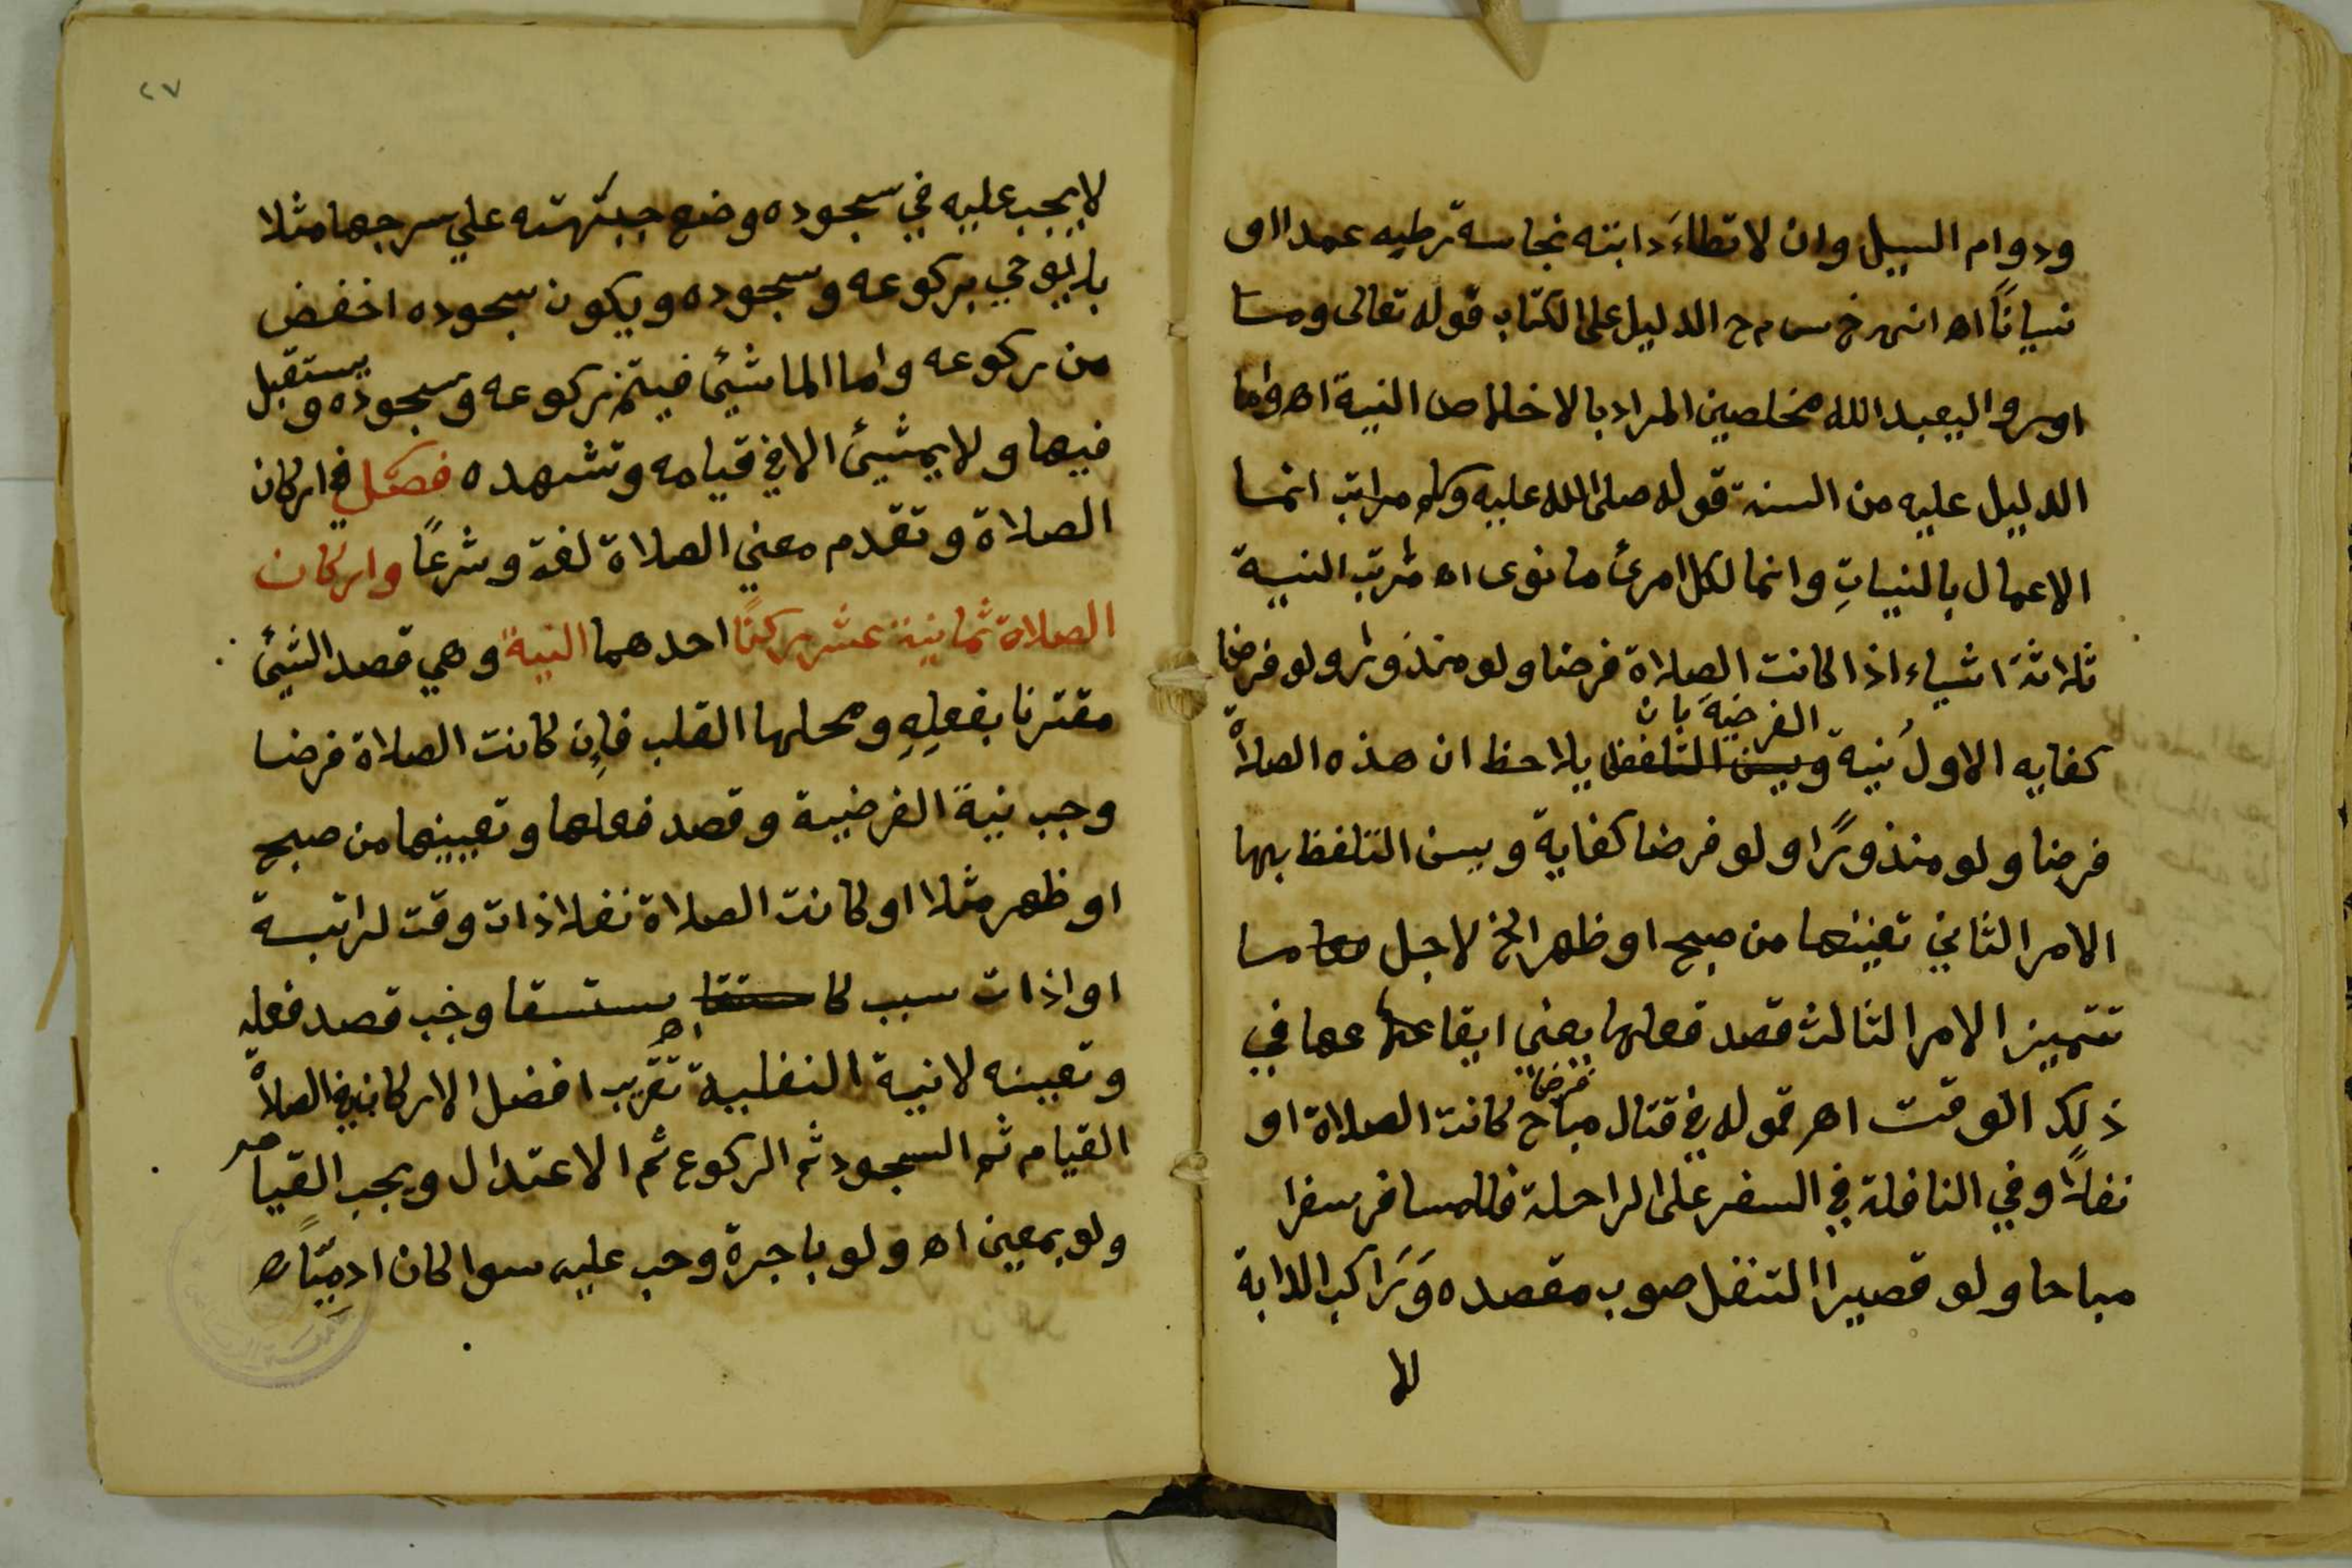 ودوام السيل وان لا تطاءَ دابته نجاسة رطبه عمدا او
نسيانًا اه انهر خ س م ح الدليل على الكتاب قوله تعالى وما
امروا ليعبد الله مخلصين المراد بالاخلاص النية اه واما
الدليل عليه من السنة قوله صلى الله عليه وسلم مراتب انما
الاعمال بالنياتِ وانما لكل امرئ ما نوى اه مراتب النية
ثلاثة اشياء اذا كانت الصلاة فرضا ولو منذورا ولو فرضا
كفايه الاول نية الفرضية بان يلاحظ ان هذه الصلاة
فرضا ولو منذورًا ولو فرضا كفاية ويسن التلفظ بها
الامر الثاني تعيينها من صبح او ظهر الخ لاجل ما
تتميز الامر الثالث قصد فعلها يعني ايقاعها في
ذلك الوقت اهر قوله في قتال مباح فرضا كانت الصلاة او
نفلاً وفي النافلة في السفر على الراحلة فللمسافر سفرا
مباحا ولو قصيرا التنفل صوب مقصده وَرَاكب الدابة
لا
٢٧
لا يجب عليه في سجوده وضع جبهته علي سرجها مثلا
بل يومي بركوعه وسجوده ويكون سجوده اخفض
من ركوعه واما الماشئ فيتم ركوعه وسجوده ويستقبل
فيها ولا يمشئ الا في قيامه وتشهده فصل في اركان
الصلاة وتقدم معني الصلاة لغة وشرعًا واركان
الصلاة ثمانية عشر ركنًا احدهما النية وهي قصد الشئ
مقترنا بفعلِهِ ومحلها القلب فإن كانت الصلاة فرضا
وجب نية الفرضية وقصد فعلها وتعيينها من صبح
او ظهر مثلا او كانت الصلاة نفلا ذات وقت لراتبة
او اذات سبب كا ستسقا وجب قصد فعله
وتعيينه لا نية النفلية تقريب افضل الاركان في الصلاة
القيام ثم السجود ثم الركوع ثم الاعتدال ويجب القيام
ولو بمعين اه ولو باجرة وجب عليه سوا كان ادميًّا